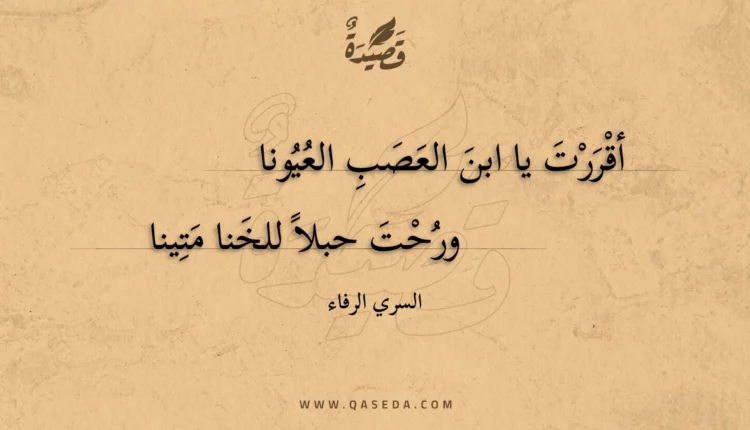 قَصِيْدَةٌ
أقْرَرْتَ يا ابنَ العَصَبِ العُيُونا
ورُحْتَ حبلاً للخَنا مَتِينا
السري الرفاء
WWW.QASEDA.COM